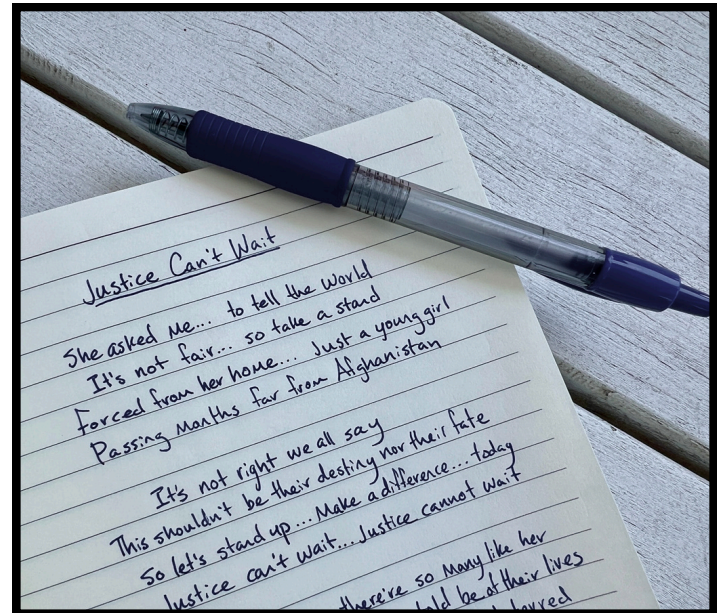 Justice Can't Wait
She asked me... to tell the world
It's not fair... so take a stand
Forced from her home... Just a young girl
Passing months far from Afghanistan
It's not right we all say
This shouldn't be their destiny nor their fate
So let's stand up... Make a difference... today
Justice can't wait... Justice cannot wait
there're so many like her
be at their lives